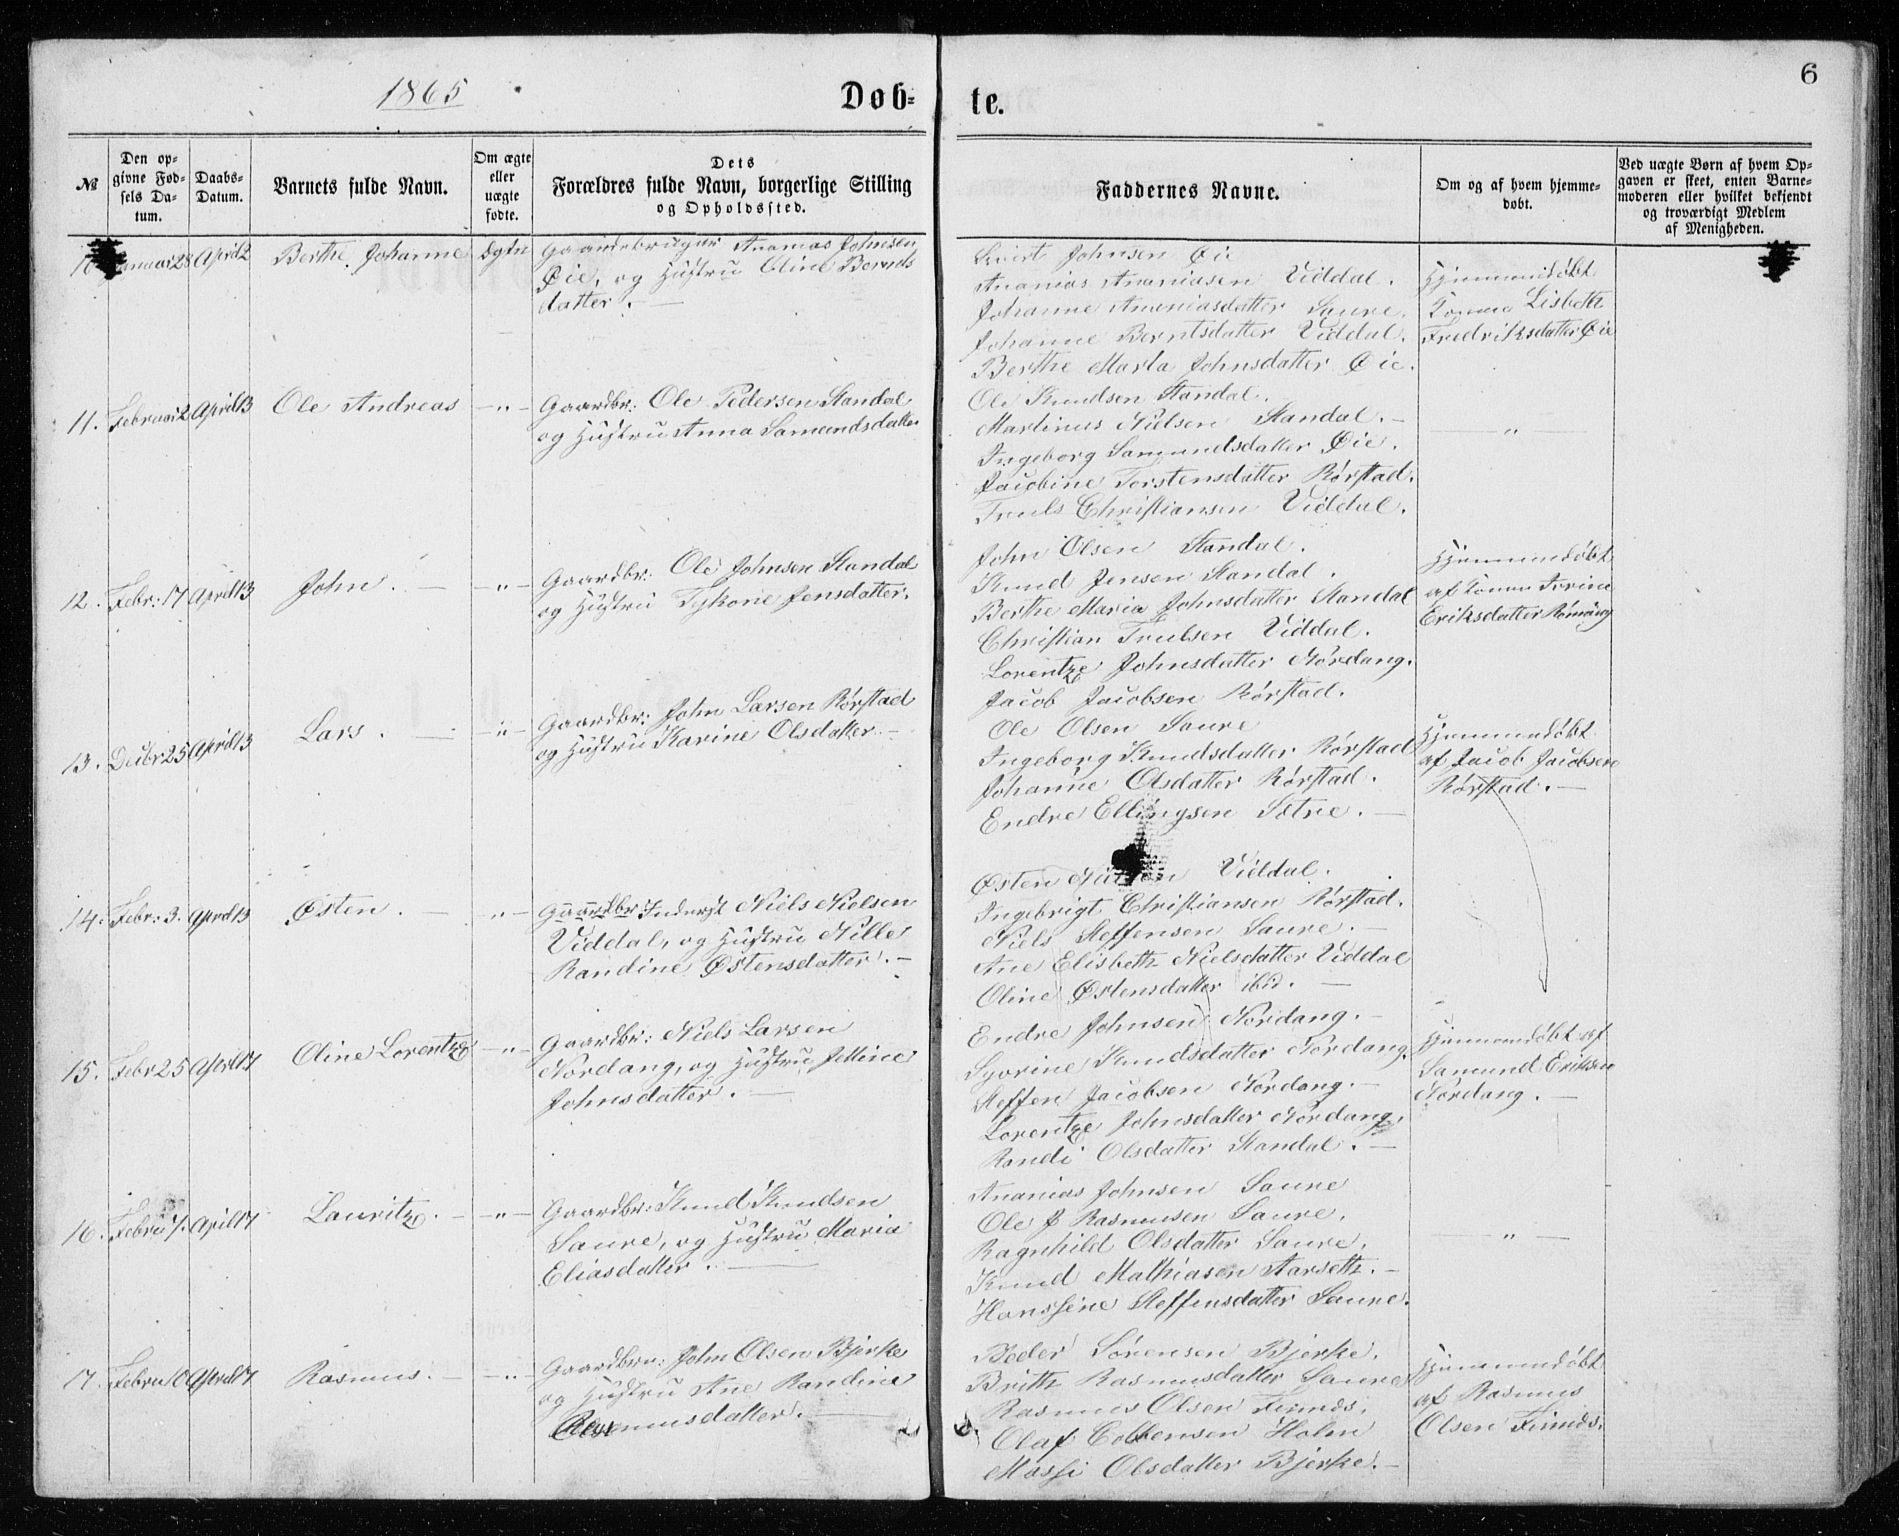 6
1865
Døb-
te.
№
Den op-
givne Fød-
sels Da-
tum.
Daabs-
Datum.
Barnets fulde Navn.
Om ægte
eller
uægte
fødte.
Dets
Forældres fulde Navn, borgerlige Stilling
og Opholdssted.
Faddernes Navne.
Om og af hvem hjemme-
døbt.
Ved uægte Børn af hvem Op-
gaven er skeet, enten Barne-
moderen eller hvilket bekjendt
og troværdigt Medlem
af Menigheden.
10 Januar 28 April 2 Berthe Johanne ægte Gaardebruger Ananias Johnsen
Øie, og Hustru Oline Bernts
datter.
Johnsen Øie
Ananias Ananiasen Viddal.
Johanne Ananiasdatter Saure.
Johanne Berntsdatter Viddal.
Berthe Marta Johnsdatter Øie.
Hjemmedøbt
Lisbeth
Fredriksdatter Øie
11. Februar 2 April 13 Ole Andreas -"- Gaardbr: Ole Pedersen Standal
og Hustru Anna Samundsdatter
Ole Knudsen Standal.
Martinus Nielsen Standal.
Ingeborg Samundsdatter Øie.
Jacobine Torstensdatter Rørstad.
Truls Christiansen Viddal.
"
12. Febr: 17 April 13 John. -"- Gaardbr: Ole Johnsen Standal
og Hustru Jensdatter.
John Olsen Standal.
Knud Jensen Standal.
Berthe Maria Johnsdatter Standal
Christian Trulsen Viddal.
Lorentze Johnsdatter Nordang.
Hjemmedøbt
af
Eriksdatter
13. Decbr 25 April 13 Lars. -"- Gaardbr: John Larsen Rørstad
og Hustru Karine Olsdatter.
Jacob Jacobsen Rørstad.
Ole Olsen Saure
Ingeborg Knudsdatter Rørstad
Johanne Olsdatter Rørstad.
Endre Ellingsen Sætre.
Hjemmedøbt
af Jacob Jacobsen
Rørstad.
14. Febr: 3. April 13 Østen. -"- Gaardbr. Inderst Niels Nielsen
Viddal, og Hustru Nille
Randine Østensdatter.
Østen Viddal.
Ingebrigt Christiansen Rørstad.
Niels Steffensen Saure.
Ane Elisbeth Nielsdatter Viddal
Oline Østensdatter ibid.
15. Febr 25 April 17 Oline Lorentze -"- Gaardbr: Niels Larsen
Nordang, og Hustru Jettine
Johnsdatter.
Endre Johnsen Nordang.
Syvrine Knudsdatter Nordang.
Steffen Jacobsen Nordang.
Lorentze Johnsdatter Nordang.
Randi Olsdatter Standal.
Hjemmedøbt af
Samund Eriksen
Nordang.
16. April 17 Lauritz. -"- Gaardbr: Knud Knudsen
Saure, og Hustru Maria
Eliasdatter.
Ananias Johnsen Saure
Ole Rasmusen Saure.
Ragnhild Olsdatter Saure.
Knud Mathiasen Aarseth.
Hanssine Steffensdatter Saure.
"
17. April 17 Rasmus. -"- Gaardbru: John Olsen Bjerke
og Hustru Ane Randine
Rasmusdatter.
Peder Sørensen Bjerke.
Brith Rasmusdatter Saure
Rasmus Olsen Finnds.
Olaf Holm
Massi Olsdatter Bjerke.
Hjemmedøbt
af Rasmus
Olsen Finnds.